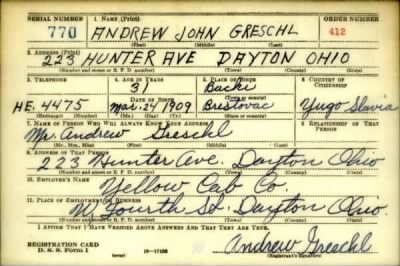 SERIAL NUMBER 1. NAME (Print) ORDER NUMBER
770 ANDREW JOHN GRESCHL 412
(First) (Middle) (Last)
2. ADDRESS (Print)
223 HUNTER AVE DAYTON OHIO
(Number and street or R. F. D. number) (Town) (County) (State)
3. TELEPHONE 4. AGE IN YEARS 5. PLACE OF BIRTH 6. COUNTRY OF CITIZENSHIP
31 Backi
HE. 4475 DATE OF BIRTH Brestovac Yugo Slavia
Mar. 24 1909
(Mo.) (Day) (Yr.)
7. NAME OF PERSON WHO WILL ALWAYS KNOW YOUR ADDRESS 8. RELATIONSHIP OF THAT PERSON
Mr. Andrew Greschl
(Mr., Mrs., Miss) (First) (Middle) (Last)
9. ADDRESS OF THAT PERSON
223 Hunter Ave. Dayton Ohio
(Number and street or R. F. D. number) (Town) (County) (State)
10. EMPLOYER'S NAME
Yellow Cab Co.
11. PLACE OF EMPLOYMENT OR BUSINESS
W Fourth St. Dayton Ohio.
(Number and street or R. F. D. number) (Town) (County) (State)
I AFFIRM THAT I HAVE VERIFIED ABOVE ANSWERS AND THAT THEY ARE TRUE.
REGISTRATION CARD
D. S. S. Form 1 16—17105 Andrew Greschl
(Registrant's signature)